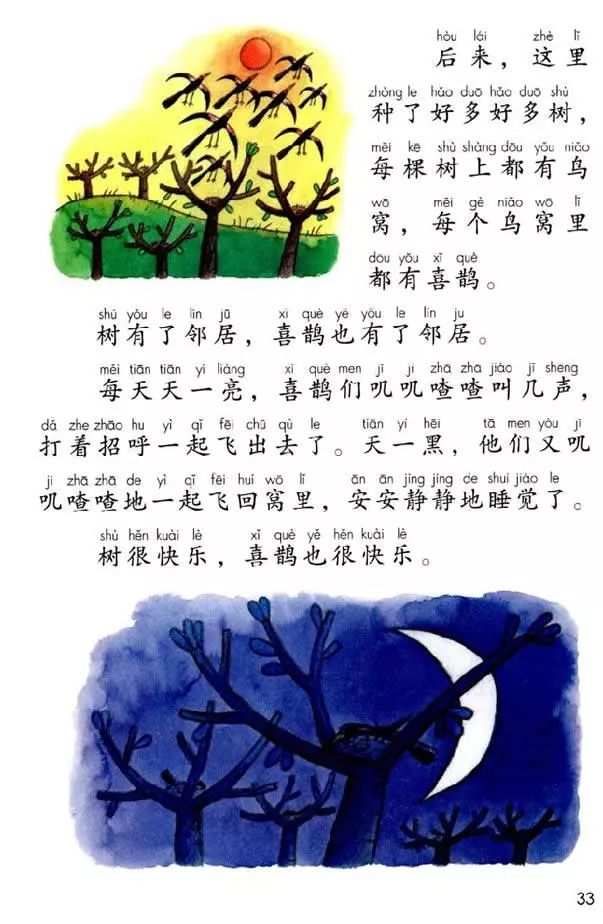 hòu lái zhè lǐ
后来，这里
zhòng le hǎo duō hǎo duō shù
种了好多好多树，
měi kē shù shàng dōu yǒu niǎo
每棵树上都有鸟
wō měi gè niǎo wō lǐ
窝，每个鸟窝里
dōu yǒu xǐ què
都有喜鹊。
shù yǒu le lín jū xǐ què yě yǒu le lín jū
树有了邻居，喜鹊也有了邻居。
měi tiān tiān yí liàng xǐ què men jī jī zhā zhā jiào jǐ shēng
每天天一亮，喜鹊们叽叽喳喳叫几声，
dǎ zhe zhāo hu yì qǐ fēi chū qù le tiān yì hēi tā men yòu jī
打着招呼一起飞出去了。天一黑，他们又叽
jī zhā zhā de yì qǐ fēi huí wō lǐ ān ān jìng jìng de shuì jiào le
叽喳喳地一起飞回窝里，安安静静地睡觉了。
shù hěn kuài lè xǐ què yě hěn kuài lè
树很快乐，喜鹊也很快乐。
33